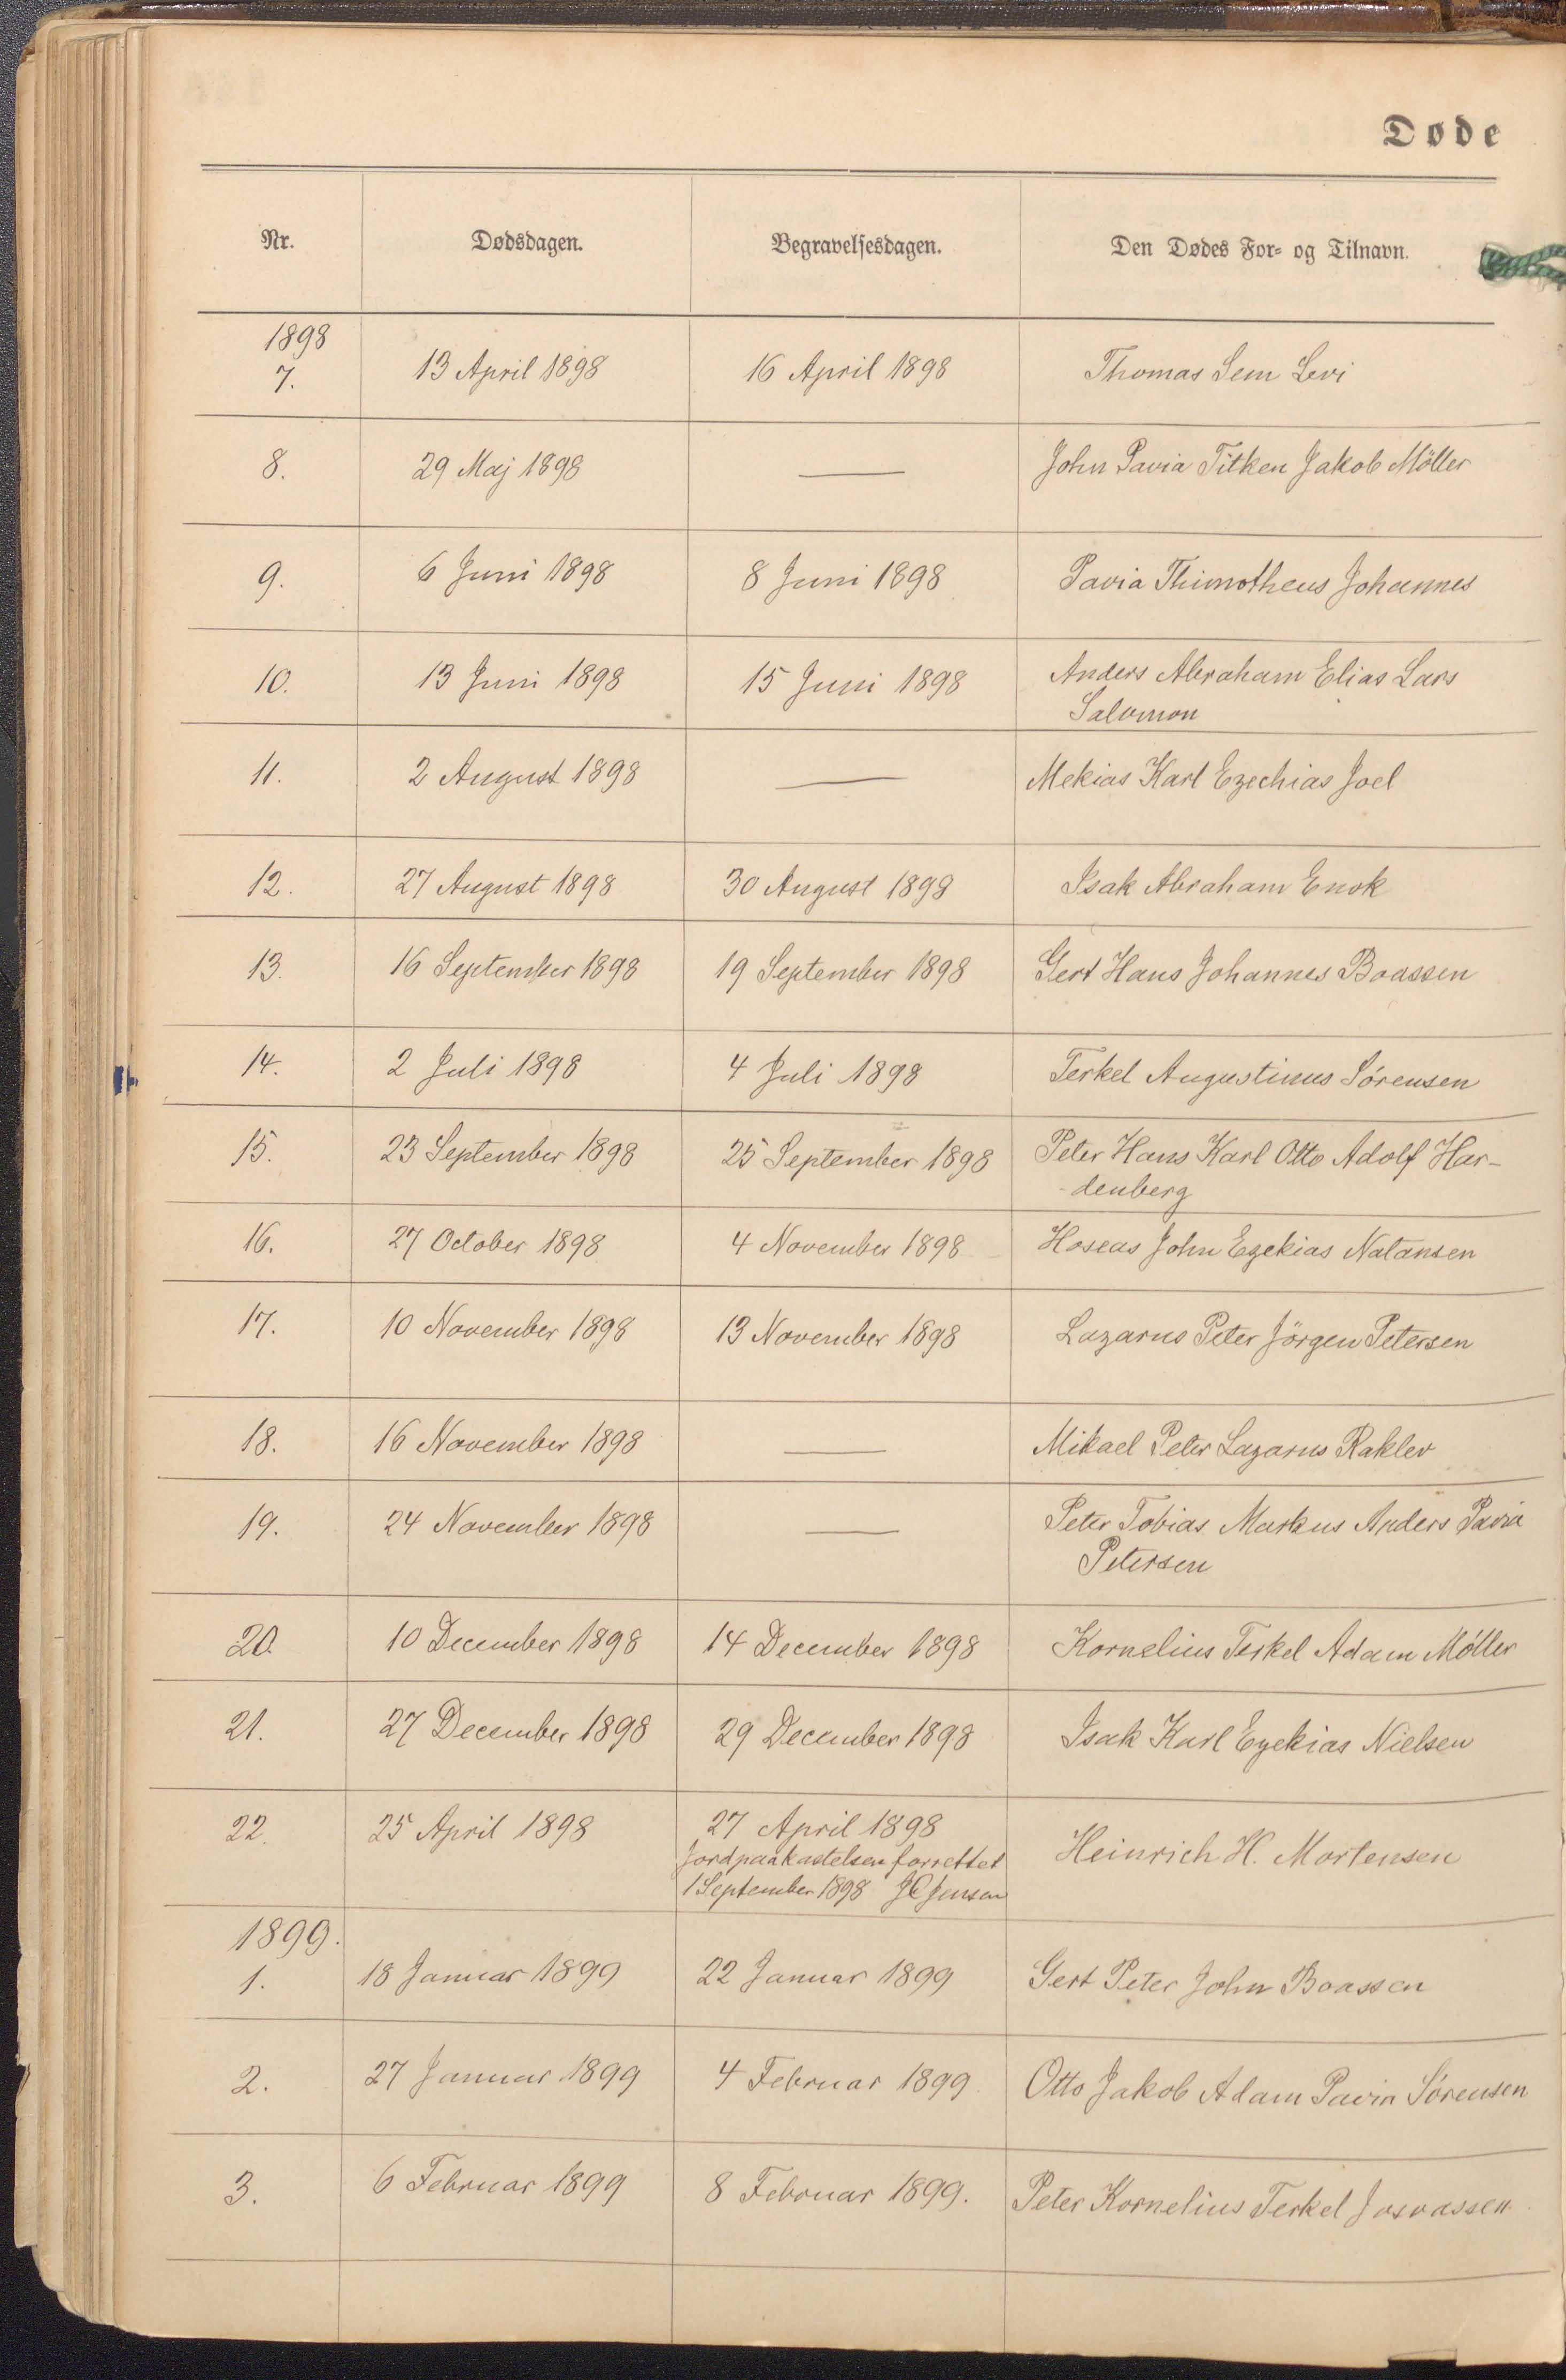 Døde
Nr. Dødsdagen. Begravelsesdagen. Den Dødes For- og Tilnavn.
1898
7. 13 April 1898 16 April 1898 Thomas Sem Levi
8. 29 Maj 1898 — John Pavia Titken Jakob Möller
9. 6 Juni 1898 8 Juni 1898 Pavia Thimotheus Johannes
10. 13 Juni 1898 15 Juni 1898 Anders Abraham Elias Lars
Salomon
11. 2 August 1898 — Mekias Karl Ezechias Joel
12. 27 August 1898 30 August 1898 Isak Abraham Enok
13. 16 September 1898 19 September 1898 Gert Hans Johannes Boassen
14. 2 Juli 1898 4 Juli 1898 Terkel Augustinus Sörensen
15. 23 September 1898 25 September 1898 Peter Hans Karl Otto Adolf Har-
-denberg
16. 27 October 1898 4 November 1898 Hoseas John Ezekias Natansen
17. 10 November 1898 13 November 1898 Lazarus Peter Jörgen Petersen
18. 16 November 1898 — Mikael Peter Lazarus Raklev
19. 24 November 1898 — Peter Tobias Markus Anders Pavia
Petersen
20. 10 December 1898 14 December 1898 Kornelius Terkel Adam Möller
21. 27 December 1898 29 December 1898 Isak Karl Ezekias Nielsen
22. 25 April 1898 27 April 1898 Heinrich H. Mortensen
Jordpaakastelsen forrettet
1 September 1898 JC Jensen
1899.
1. 18 Januar 1899 22 Januar 1899 Gert Peter John Boassen
2. 27 Januar 1899 4 Februar 1899 Otto Jakob Adam Pavia Sörensen
3. 6 Februar 1899 8 Februar 1899. Peter Kornelius Terkel Josvassen